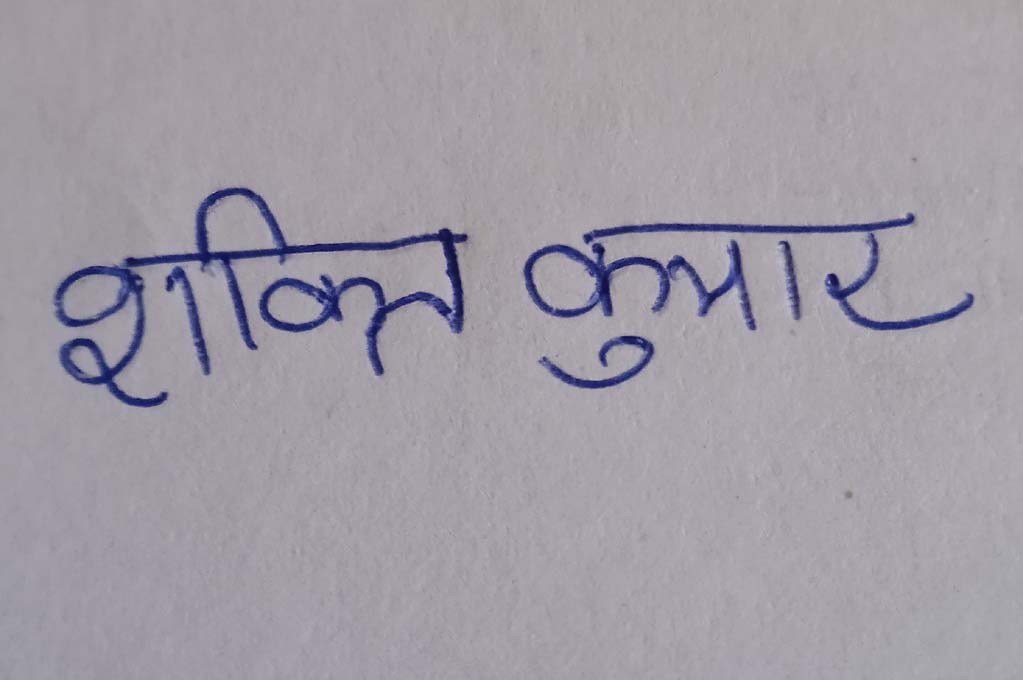 शक्ति कुमार